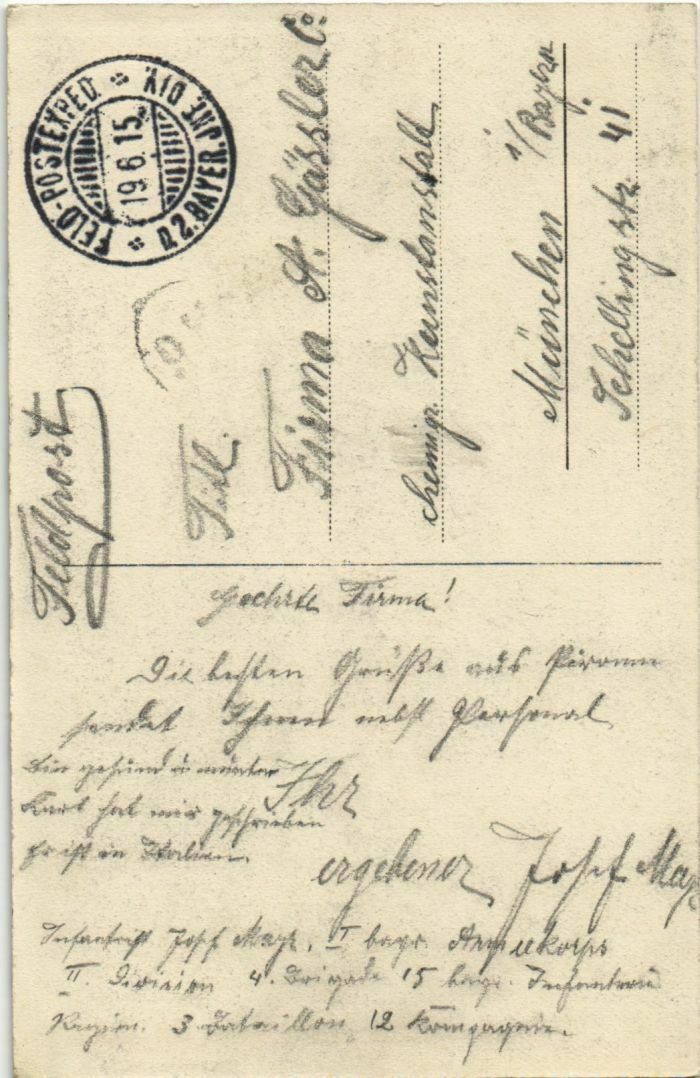 FELD-POSTEXPED. * D. 2. BAYER. INF. DIV. *
19.6.15.
Feldpost
Titl.
Firma A. Gässler Co
chemigr. Kunstanstalt
München i/Bayern
Schellingstr. 41
Geehrte Firma!
Die besten Grüße aus Péronne
sendet Ihnen nebst Personal
Ihr
ergebener Josef Mayr
Bin gesund u. munter
Karl hat mir geschrieben
Er ist in Italien.
Infantrist Josef Mayr, I bayr. Armeekorps
II. Division 4. Brigade 15 bayr. Infanterie
Regim. 3 Bataillon 12 Kompagnie.